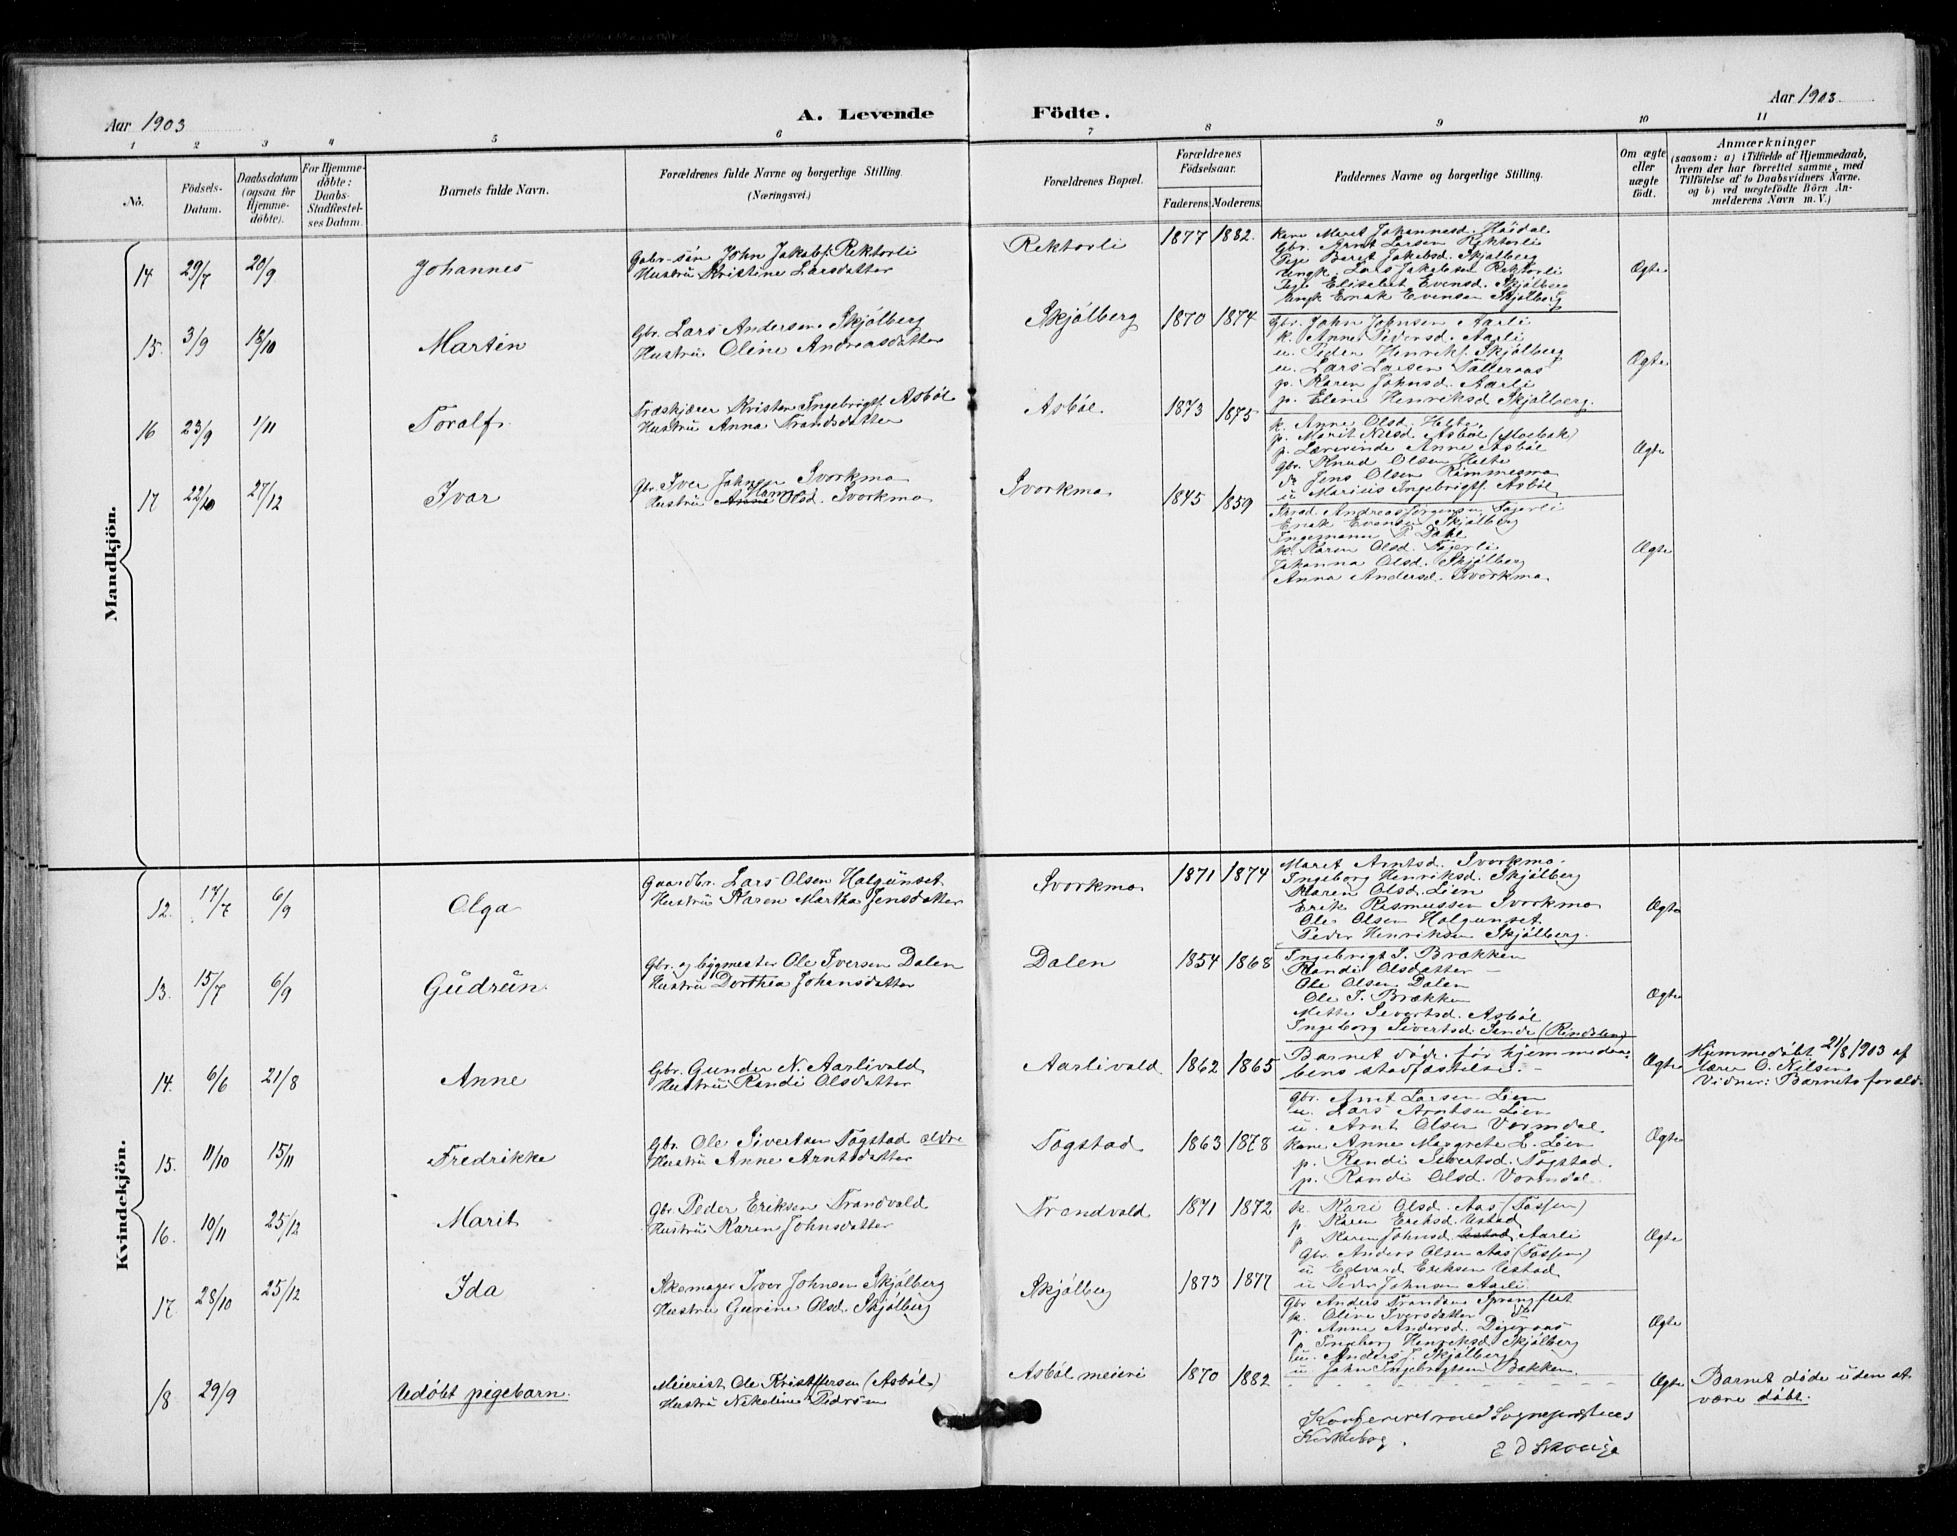 Aar 1903
A. Levende Födte.
Aar 1903.
1 2 3 4 5 6 7 8 9 10 11
No.
Födsels-Datum.
Daabsdatum (ogsaa for Hjemmedöbte).
For Hjemmedöbte: Daabs-Stadfæstelses Datum.
Barnets fulde Navn.
Forældrenes fulde Navne og borgerlige Stilling. (Næringsvei.)
Forældrenes Bopæl.
Forældrenes Födselsaar.
Faderens. Moderens.
Faddernes Navne og borgerlige Stilling.
Om ægte eller uægte födt.
Anmærkninger
(saasom: a) i Tilfælde af Hjemmedaab, hvem der har forrettet samme, med Tilföielse af to Daabsvidners Navne. og b) ved uegtefödte Börn Anmelderens Navn m. V.)
Mandkjön.
14 29/7 20/9 Johannes
Gabr-søn John Jakobs. Rektorli
Hustrü Kristine Larsdatter
Rektorli 1877 1882.
Kone Marit Johannesd. Høidal
Gbr. Arnt Larsen Rektorli
Pige Beret Jakobsd. Skjølberg
Ungk. Lars Jakobsen Rektorli
Pige Elisabet Evensd. Skjølberg
Ungk Erik Evensen Skjølberg
Ægte
15. 3/9 18/10 Martin
Gbr. Lars Andersen Skjølberg
Hustrü Oline Andreasdatter
Skjølberg 1870 1874
Gbr. John Johnsen Aarli
k. Anne Siversd. Aarli
u. Peder Henriks. Skjølberg
u. Lars Larsen
p. Karen Johnsd. Aarli
p. Eline Henriksd Skjølberg.
Ægte
16 23/9 1/11 Toralf.
Træskjærer Kristen Ingebrigts. Asbøl
Hustrü Anna Trondsdatter
Asbøl. 1873 1875
k. Anne Olsd. Helte.
p. Marit Nilsd Asbøl (Moebak)
p. Lærerinde Anne Asbøl
gbr. Knud Olsen Helte
Jens Olsen Rimmesmo
u Marius Ingebrigts. Asbøl
Ægte
17 22/10 27/12 Ivar
Gbr. Iver Johnsen Svorkmo
Hustrü Anne Olsd. Svorkmo
Svorkmo 1845 1859
Andreas Jørgensen
Erik Evensen Skjølberg
Ingemann P. Dahl
k. Karen Olsd.
Johanna Olsd. Skjølberg
Anna Andersd. Svorkmo
Ægte
Kvindekjön.
12. 17/7 6/9 Olga
Gaardbr. Lars Olsen Holgünset
Hustrü Karen Martha Jensdatter
Svorkmo 1871 1874
Marit Arntsd. Svorkmo.
Ingeborg Henriksd. Skjølberg
Karen Olsd. Lien
Erik Rasmussen Svorkmo
Ole Olsen Holgunset
Peder Henriksen Skjølberg.
Ægte
13. 15/7 6/9 Güdrün.
Gbr. og bygmester Ole Iversen Dalen
Hustrü Dorthea Johansdatter
Dalen 1854 1868
Ingebrigt I. Brækken
Randi Olsdatter —
Ole Olsen Dalen
Ole I. Brækken
Mette Sivertsd. Asbøl
Ingeborg Sivertsd. (Rindalen)
Ægte
14. 6/6 21/8 Anne
Gbr. Gunder N. Aarlivold
Hustrü Randi Olsdatter
Aarlivold 1862 1865
Barnet døde før hjemmedaabens stadfæstelse. —
Ægte
Hjemmedøbt 21/8 1903 af lærer O. Nilsen
Vidner: Barnets foræld.
15. 11/10 15/11 Fredrikke
Gbr Ole Sivertsen Togstad ældre
Hustrü Anne Arntsdatter
Togstad 1863 1878
Gbr. Arnt Larsen Lien
u. Lars Arntsen Lien
u. Arnt Olsen Vormdal
Kone Anne Margrete L. Lien
p. Randi Sivertsd. Togstad.
p. Randi Olsd. Vormdal.
Ægte
16. 10/11 25/12 Marit
Gbr. Peder Eriksen Trondvold
Hustrü Karen Johnsdatter
Trondvold 1871 1872
k. Kari Olsd. Aas (Fossen)
p. Karen Eriksd. Ustad
p. Karen Johnsd. Ustad Aarli
Gbr. Anders Olsen Aas (Fossen)
u Edvard Eriksen Ustad
u Peder Johnsen Aarli
Ægte
17 28/10 25/12 Ida
Skomager Iver Johnsen Skjølberg
Hustrü Gurine Olsd. Skjølberg
Skjølberg 1873 1877
Gbr Anders Trondsen Sprangflot
k. Oline Iversdatter do
p. Anne Andersd. Digeraas
p. Ingeborg Henriksd. Skjølberg
u. Anders J. Skjølberg
u John Ingebrigtsen Bakken
Ægte
18 29/9 Udøbt pigebarn.
Meierist Ole Kristoffersen (Asbøl)
Hustrü Nikoline
Asbøl meieri 1870 1882
Ægte
Barnet døde uden at være døbt.
Konfereret med Sognepræstens Kirkebog.